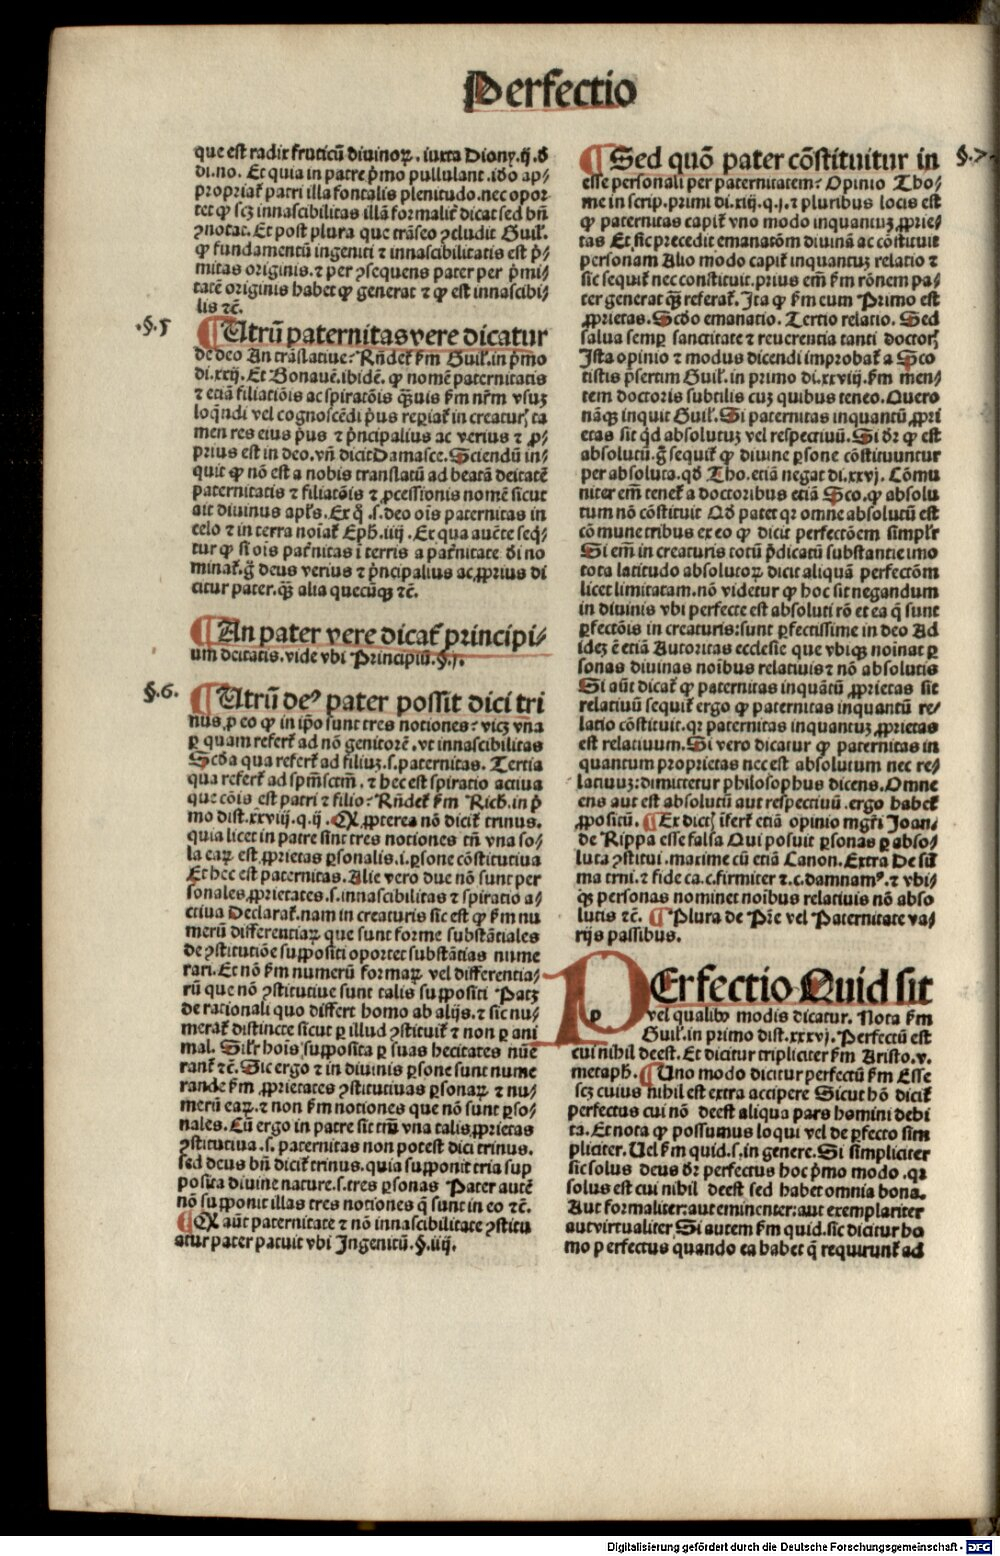 Perfectio
que est radix fruticũ diuinoꝝ. iuxta Diony. ij. ď
di. no. Et quia in patre p̃mo pullulant. iđo ap⸗
propriaƭ patri illa fontalis plenitudo. nec opor
tet ꝙ scꝫ innascibilitas illã formalit̃ dicat sed bñ
ꝯnotat. Et post plura que trãseo ꝯcludit Guil'.
ꝙ fundamentũ ingeniti ⁊ innascibilitatis est p̃⸗
mitas originis. ⁊ per ꝯsequens pater per p̃mi⸗
tatẽ originis habet ꝙ generat ⁊ ꝙ est innascibi⸗
lis ⁊c̃.
.§. 5
¶ Utrũ paternitas vere dicatur
de deo An trãslatiue: Rñdeƭ ẜm Guil'. in p̃mo
di. xxij. Et Bonauẽ. ibidẽ. ꝙ nomẽ paternitatis
⁊ etiã filiatiõis ac spiratõis ꝙ̃uis ẜm nr̃m vsuꝫ
loq̃ndi vel cognoscẽdi p̃us rep̱iaƭ in creaturꝭ ta
men res eius p̃us ⁊ p̃ncipalius ac verius ⁊ ꝓ⸗
prius est in deo. vñ dicit Damasce. Sciendũ in⸗
quit ꝙ nõ est a nobis translatũ ad beatã deitatẽ
paternitatis ⁊ filiatõis ⁊ ꝓcessionis nomẽ sicut
ait diuinus apl's. Ex q̊ .s. deo oĩs paternitas in
celo ⁊ in terra noĩaƭ Eph̃. iiij. Ex qua auc̃te seq̃⸗
tur ꝙ si oĩs pat̃nitas ĩ terris a pat̃nitate đi no
minaƭ. g̃ deus verius ⁊ p̃ncipalius ac ꝓprius di
citur pater. ꝙ̃ alia quecũqꝫ ⁊c̃.
¶ An pater vere dicaƭ principi⸗
um deitatis. vide vbi Principiũ. §. j.
§. 6.
¶ Utrũ deꝰ pater possit dici tri
nus. p eo ꝙ in ip̃o sunt tres notiones: vicꝫ vna
ꝑ quam referƭ ad nõ genitorẽ. vt innascibilitas
Scđa qua referƭ ad filiuꝫ. s. paternitas. Tertia
qua referƭ ad spm̃sctm̃. ⁊ hec est spiratio actiua
que cõis est patri ⁊ filio: Rñdeƭ ẜm Rich. in p̃
mo dist. xxviij. q. ij. Q ꝓpterea nõ diciƭ trinus.
quia licet in patre sint tres notiones tñ vna so⸗
la eaꝝ est ꝓprietas ꝑsonalis. i. ꝑsone cõstitutiua
Et hec est paternitas. Alie vero due nõ sunt per
sonales ꝓprietates. s. innascibilitas ⁊ spiratio a⸗
ctiua Declaraƭ. nam in creaturis sic est ꝙ ẜm nu
merũ differentiaꝝ que sunt forme substãtiales
de ꝯstitutiõe suppositi oportet substãtias nume
rari. Et nõ ẜm numerũ formaꝝ vel differentia⸗
rũ que nõ ꝯstitutiue sunt talis suppositi Patꝫ
de rationali quo differt homo ab alijs. ⁊ sic nu⸗
meraƭ distincte sicut ꝑ illud ꝯstituiƭ ⁊ non ꝑ ani
mal. Sil'r hoĩs supposita ꝑ suas hecitates nũe
ranƭ ⁊c̃. Sic ergo ⁊ in diuinis ꝑsone sunt nume
rande ẜm ꝓprietates ꝯstitutiuas ꝑsonaꝝ ⁊ nu⸗
merũ eaꝝ. ⁊ non ẜm notiones que nõ sunt ꝑso⸗
nales. Cũ ergo in patre sit tm̃ vna talis ꝓprietas
ꝯstitutiua. s. paternitas non potest dici trinus.
sed deus bñ diciƭ trinus. quia supponit tria sup
posita diuine nature. s. tres ꝑsonas Pater autẽ
nõ supponit illas tres notiones q̃ sunt in eo ⁊c̃.
¶ Q aũt paternitate ⁊ nõ innascibilitate ꝯstitu
atur pater patuit vbi Ingenitũ. §. iiij.
§. 7.
¶ Sed quõ pater cõstituitur in
esse personali per paternitatem: Opinio Tho⸗
me in scrip. primi di. xiij. q. j. ⁊ pluribus locis est
ꝙ paternitas capiƭ vno modo inquantuꝫ ꝓprie⸗
tas Et sic precedit emanatõm diuinã ac cõstituit
personam Alio modo capiƭ inquantuꝫ relatio ⁊
sic sequiƭ nec constituit. prius em̃ ẜm rõnem pa⸗
ter generat ꝙ̃ referaƭ. Ita ꝙ ẜm eum Primo est
ꝓprietas. Scđo emanatio. Tertio relatio. Sed
salua semp̱ sanctitate ⁊ reuerentia tanti doctorꝭ
Ista opinio ⁊ modus dicendi improbaƭ a Sco
tistis p̃sertim Guil'. in primo di. xxviij. ẜm men⸗
tem doctoris subtilis cuꝫ quibus teneo. Quero
nãqꝫ inquit Guil'. Si paternitas inquantũ ꝓpri
etas sit qđ absolutuꝫ vel respectiuũ. Si đr ꝙ est
absolutũ. g̃ sequiƭ ꝙ diuine ꝑsone cõstituuntur
per absoluta. qđ Tho. etiã negat di. xxvj. Cõmu
niter em̃ teneƭ a doctoribus etiã Sco. ꝙ absolu
tum nõ cõstituit Qđ patet qꝛ omne absolutũ est
cõmune tribus ex eo ꝙ dicit perfectõem simpl'r
Si em̃ in creaturis totũ p̃dicatũ substantie imo
tota latitudo absolutoꝝ dicit aliquã perfectõm
licet limitatam. nõ videtur ꝙ hoc sit negandum
in diuinis vbi perfecte est absoluti rõ et ea q̃ sunt
ꝑfectõis in creaturis: sunt ꝑfectissime in deo Ad
ideꝫ ẽ etiã Autoritas ecclesie que vbiqꝫ noĩnat ꝑ
sonas diuinas noĩbus relatiuis ⁊ nõ absolutis
Si aũt dicaƭ ꝙ paternitas inquãtũ ꝓprietas sit
relatiuũ sequiƭ ergo ꝙ paternitas inquantũ re⸗
latio cõstituit. qꝛ paternitas inquantuꝫ ꝓprietas
est relatiuum. Si vero dicatur ꝙ paternitas in
quantum proprietas nec est absolutum nec re⸗
latiuuꝫ: dimittetur philosophus dicens. Omne
ens aut est absolutũ aut respectiuũ. ergo habeƭ
ꝓpositũ. ¶ Ex dictꝭ ĩferƭ etiã opinio mgr̃i Joan.
de Rippa esse falsa Qui posuit ꝑsonas ꝑ abso⸗
luta ꝯstitui. maxime cũ etiã Canon. Extra De sũ
ma trni. ⁊ fide ca. c. firmiter ⁊. c. damnamꝰ. ⁊ vbi⸗
qꝫ personas nominet noĩbus relatiuis nõ abso
lutis ⁊c̃. ¶ Plura de Pr̃e vel Paternitate va⸗
rijs passibus.
PErfectio Quid sit
vel qualibꝰ modis dicatur. Nota ẜm
Guil'. in primo dist. xxxvj. Perfectũ est
cui nihil deest. Et dicitur tripliciter ẜm Aristo. v.
metaph̃. ¶ Uno modo dicitur perfectũ ẜm Esse
scꝫ cuius nihil est extra accipere Sicut hõ diciƭ
perfectus cui nõ deest aliqua pars homini debi
ta. Et nota ꝙ possumus loqui vel de ꝑfecto sim
pliciter. Uel ẜm quid. s. in genere. Si simpliciter
sic solus deus đr perfectus hoc p̃mo modo. qꝛ
solus est cui nihil deest sed habet omnia bona.
Aut formaliter: aut eminenter: aut exemplariter
aut virtualiter Si autem ẜm quid. sic dicitur ho
mo perfectus quando ea habet q̃ requirunƭ ad
Digitalisierung gefördert durch die Deutsche Forschungsgemeinschaft - DFG